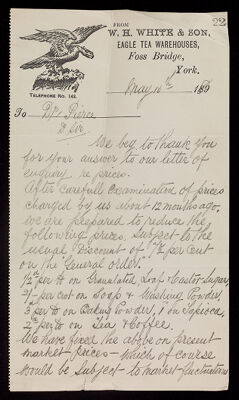 22
FROM
W. H. WHITE & SON,
EAGLE TEA WAREHOUSES,
Foss Bridge,
York.
TELEPHONE No. 142.
May 189
To Dr Pierce
D. Sir
We beg to thank you
for your answer to our letter of
enquiry re prices.
After carefull examination of prices
charged by us about 12 months ago.
we are prepared to reduce the
following prices, subject to the
usual Discount of per Cent
on the "General order."
per on Granulated, Loaf & Castor Sugar,
per cwt on Soap & Washing Powder,
3 per on Baking Powder, 1 on Tapioca,
per on Tea & Coffee.
We have fixed the above on present
market prices — which of course
would be subject to market fluctuations